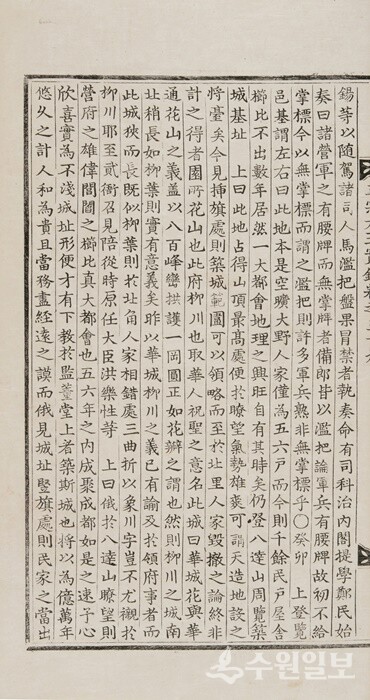 鍚等以隨駕諸司人馬濫把盤果冒禁者執奏命有司科治內閣提學鄭民始
奏曰諸營軍之有腰牌而無掌牌者備郎皆以濫把論軍兵有腰牌故初不給
掌標今以無掌標而謂之濫把則許多軍兵孰非無掌標乎○癸卯 上登覽
邑基謂左右曰此地本是空曠大野人家僅為五六戶而今則千餘民戶屋舍
櫛比不出數年居然一大都會地理之興旺自有其時矣仍登八達山周覽築
城基址 上曰此地占得山頂最高處便於瞭望氣勢雄爽可謂天造地設之
將臺矣今見揷旗處則築城範圍可以領略而至於北里人家毀撤之論終非
計之得者園所花山也此府柳川也取華人祝聖之意名此城曰華城花與華
通花山之義盖以八百峰巒拱護一岡圓正如花瓣之謂也然則柳川之城南
址稍長如柳葉則實有意義矣昨以華城柳川之義已有論及於領府事者而
此城狹而長旣似柳葉則於北角人家相錯處三曲折以象川字豈不尤襯於
柳川耶至貳衙召見陪從時原任大臣洪樂性等 上曰俄於八達山瞭望則
營府之雄偉閭閻之櫛比真大都會也五六年之內成聚成都如是之速予心
欣喜實為不淺城址形便才有下教於監蕫堂上者築斯城也將以為億萬年
悠久之計人和為貴且當務盡經遠之謨而俄見城址竪旗處則民家之當出
수원일보